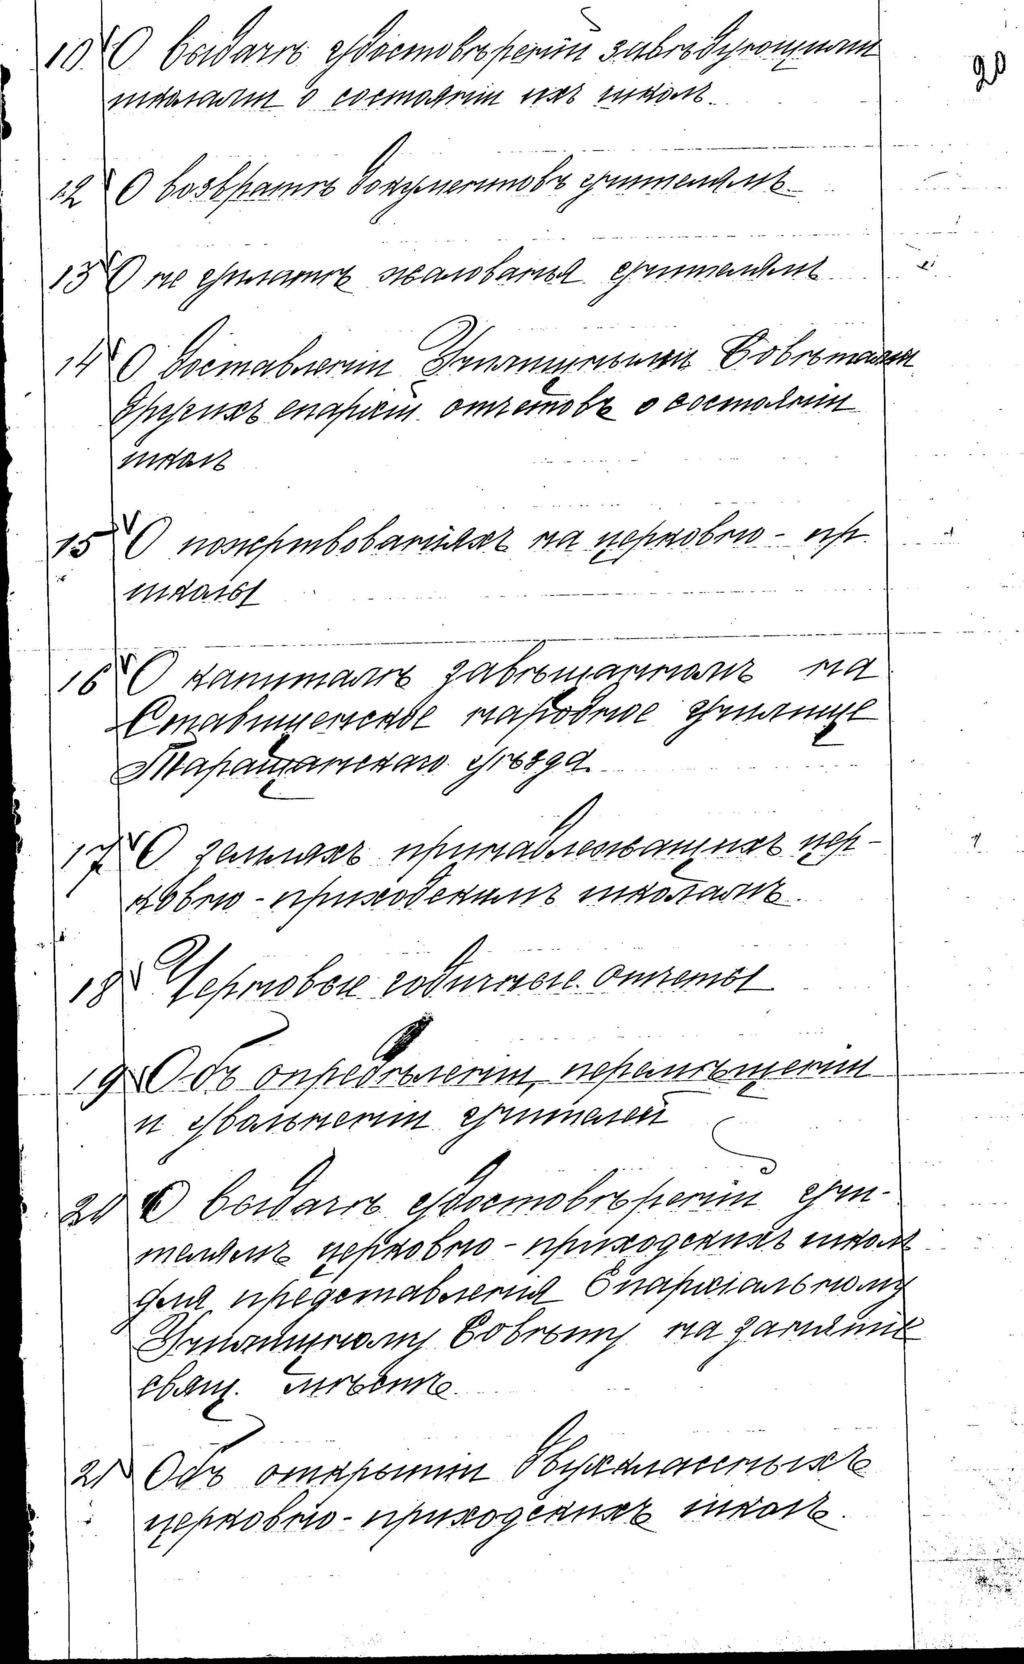 20
10 О выдачѣ удостовѣреній завѣдующимъ
школами о состояніи ихъ школъ.
12 О возвратѣ документовъ учителямъ
13 О не уплатѣ жалованья учителямъ
14 О доставленіи Училищнымъ Совѣтамъ
другихъ епархій отчетовъ о состояніи
школъ
15 О пожертвованіяхъ на церковно-пр.
школы
16 О капиталѣ завѣщанномъ на
Ставищенское народное училище
Таращанскаго уѣзда.
17 О земляхъ принадлежащихъ цер-
ковно-приходскимъ школамъ.
18 Черновые годичные отчеты
19 Объ опредѣленіи, перемѣщеніи
и увольненіи учителей
20 О выдачѣ удостовѣреній учи-
телямъ церковно-приходскихъ школъ
для представленія Епархіальному
Училищному Совѣту на занятіе
свящ. мѣстъ.
21 Объ открытіи двухклассныхъ
церковно-приходскихъ школъ.